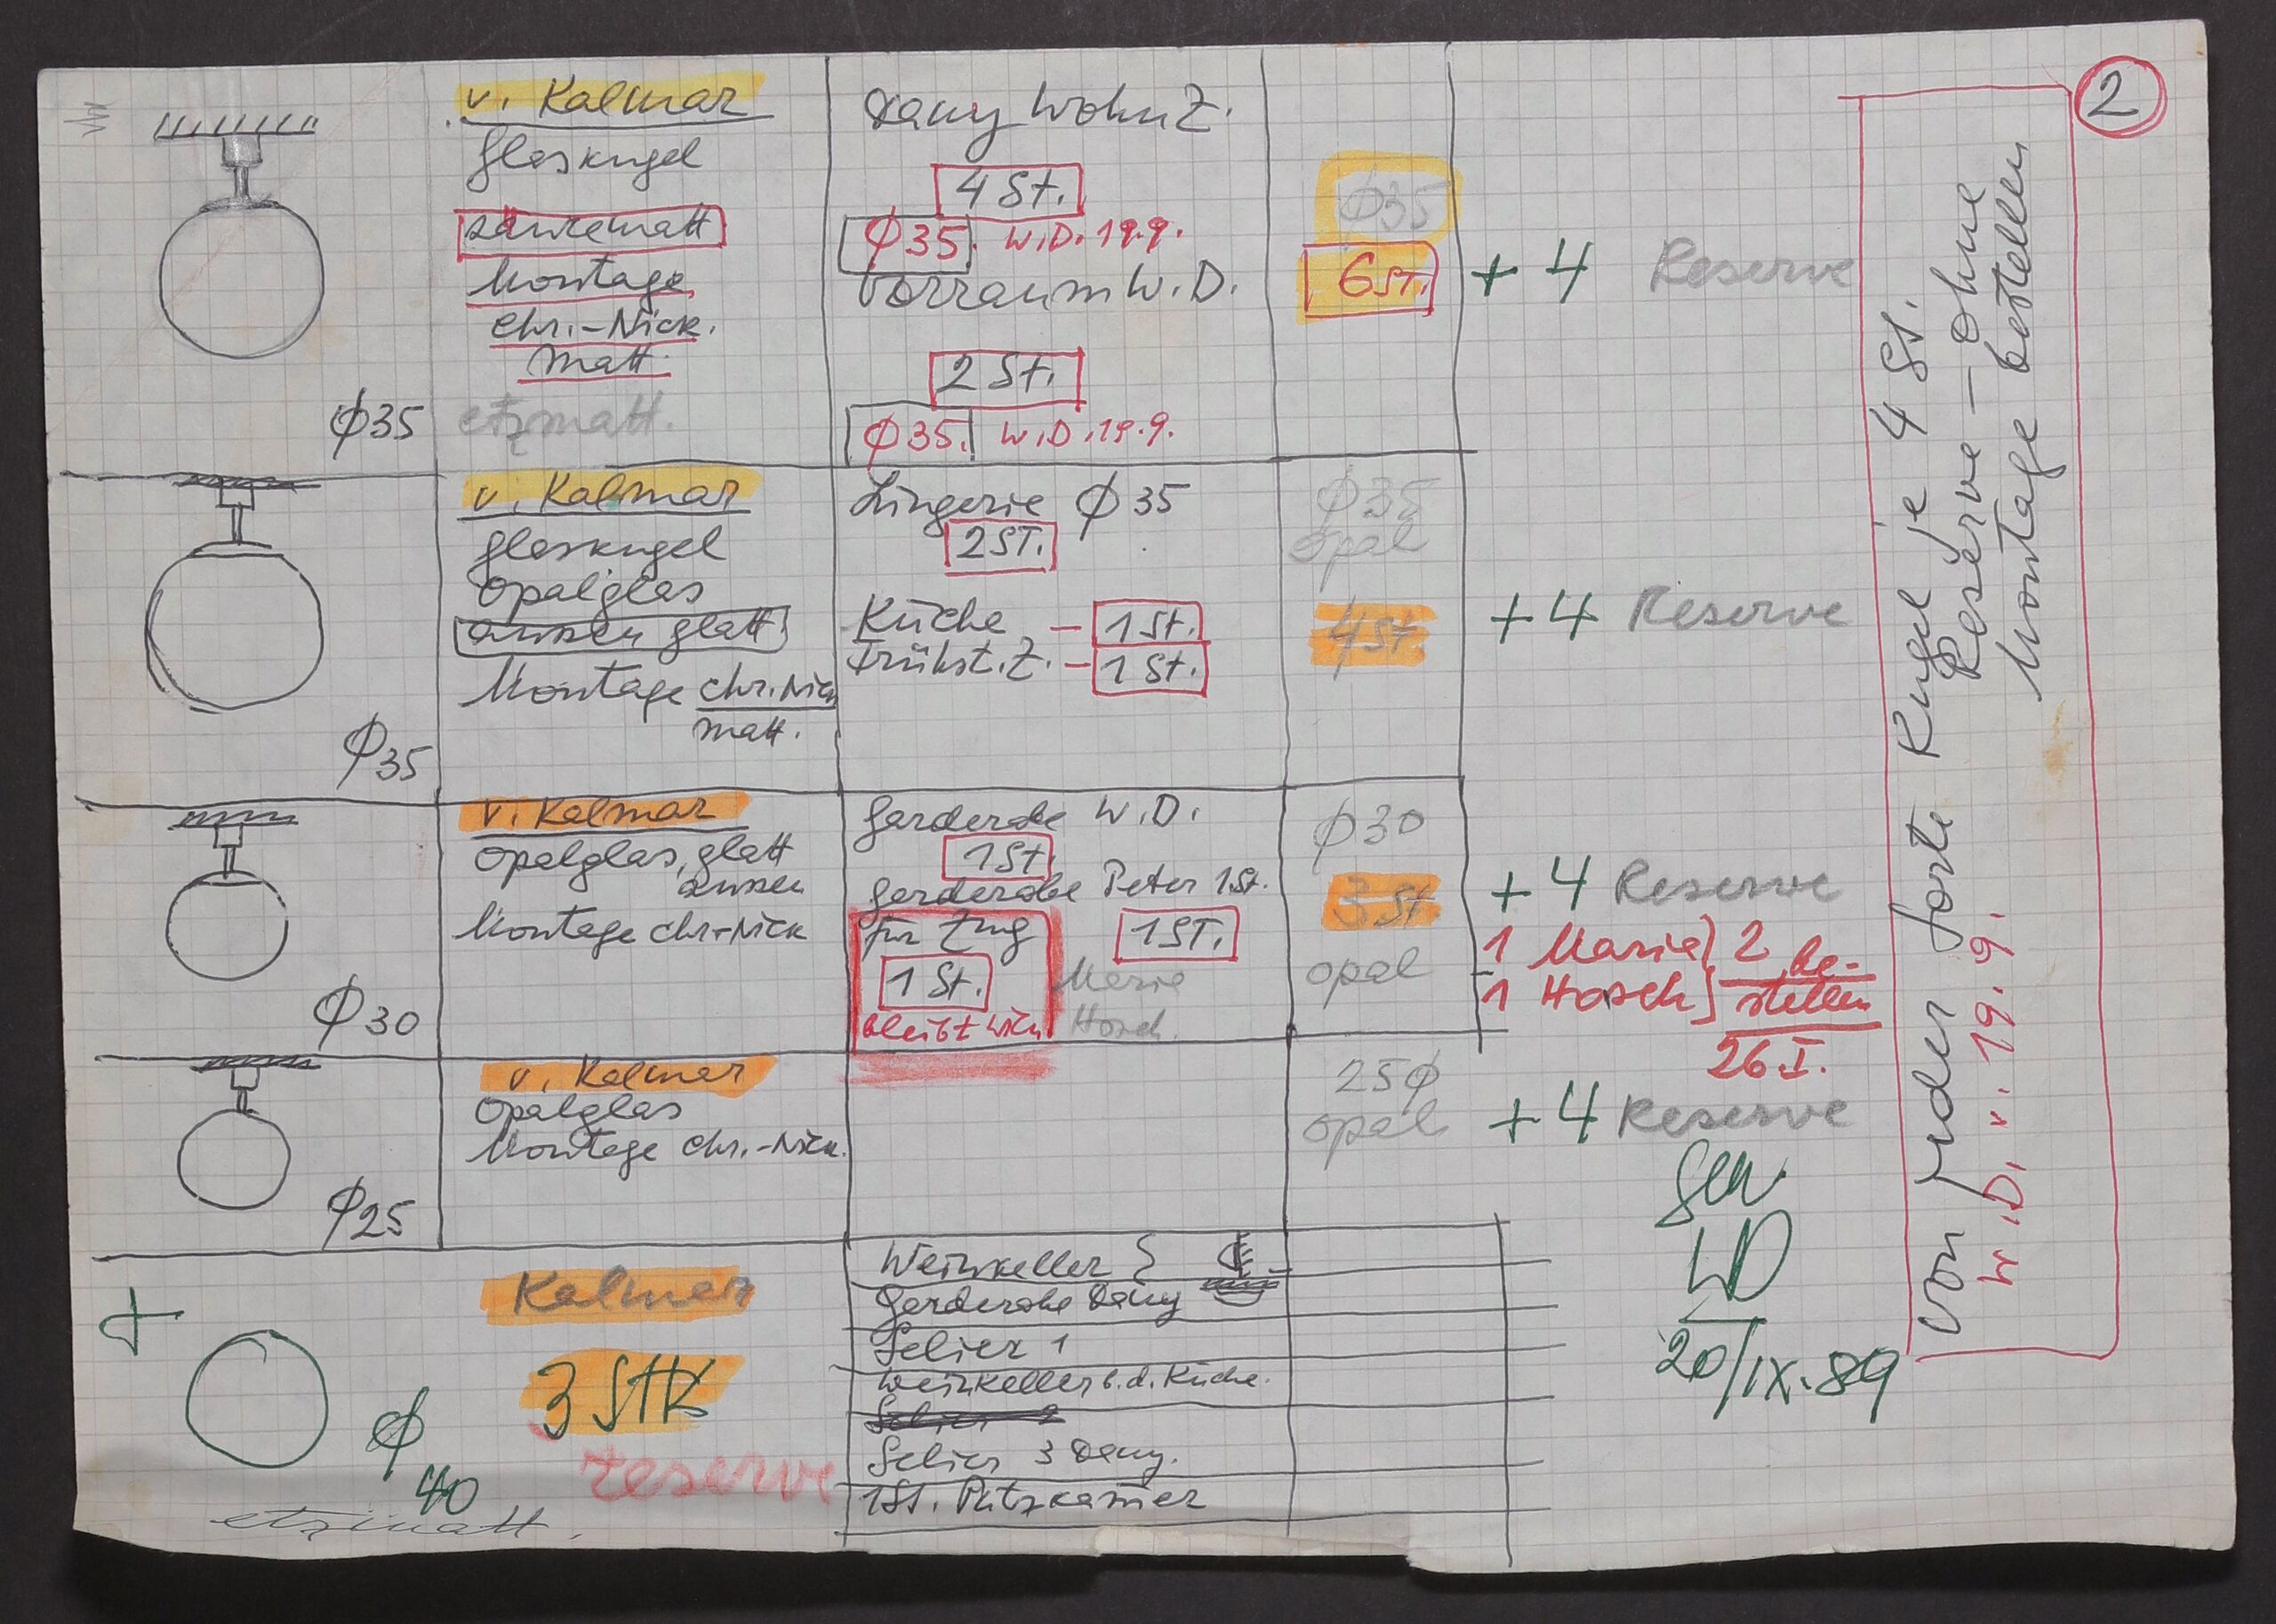 2
v. Kalmar
Glaskugel
säurematt
Montage
chr.-Nick.
matt.
etzmatt.
Ø35
Dany WohnZ.
4 St.
Ø35. W.D. 19.9.
Vorraum W.D.
2 St.
Ø35. W.D. 19.9.
Ø35
6 ST.
+ 4 Reserve
v. Kalmar
Glaskugel
Opalglas
aussen glatt
Montage chr. Nick
matt.
Ø35
Lingerie Ø 35
2 ST.
Küche – 1 St.
Frühst. Z. – 1 St.
Ø35
opal
4 St.
+ 4 Reserve
v. Kalmar
Opalglas, glatt
aussen
Montage chr.-Nick
Ø30
Garderobe W.D.
1 St.
Garderobe Peter 1 St.
für Zug
1 ST.
1 St.
bleibt Wien
Marie
Hosch.
Ø30
3 St
opal
+ 4 Reserve
1 Maria) 2 be-
1 Hosch] stellen
26. I.
v. Kalmar
Opalglas
Montage chr.-Nick.
Ø25
25Ø
opal
+ 4 Reserve
Gen.
WD
20/IX.89
+
Ø
40
etzmatt.
Kalmar
3 Stk
reserve
Weinkeller }
Garderobe Dany
Selier 1
Weinkeller b. d. Küche.
Selier 2
Selier 3 Dany.
1 St. Putzkammer
Von jeder Sorte Kugel je 4 St.
Reserve – ohne
Montage bestellen
W.D. v. 19.9.